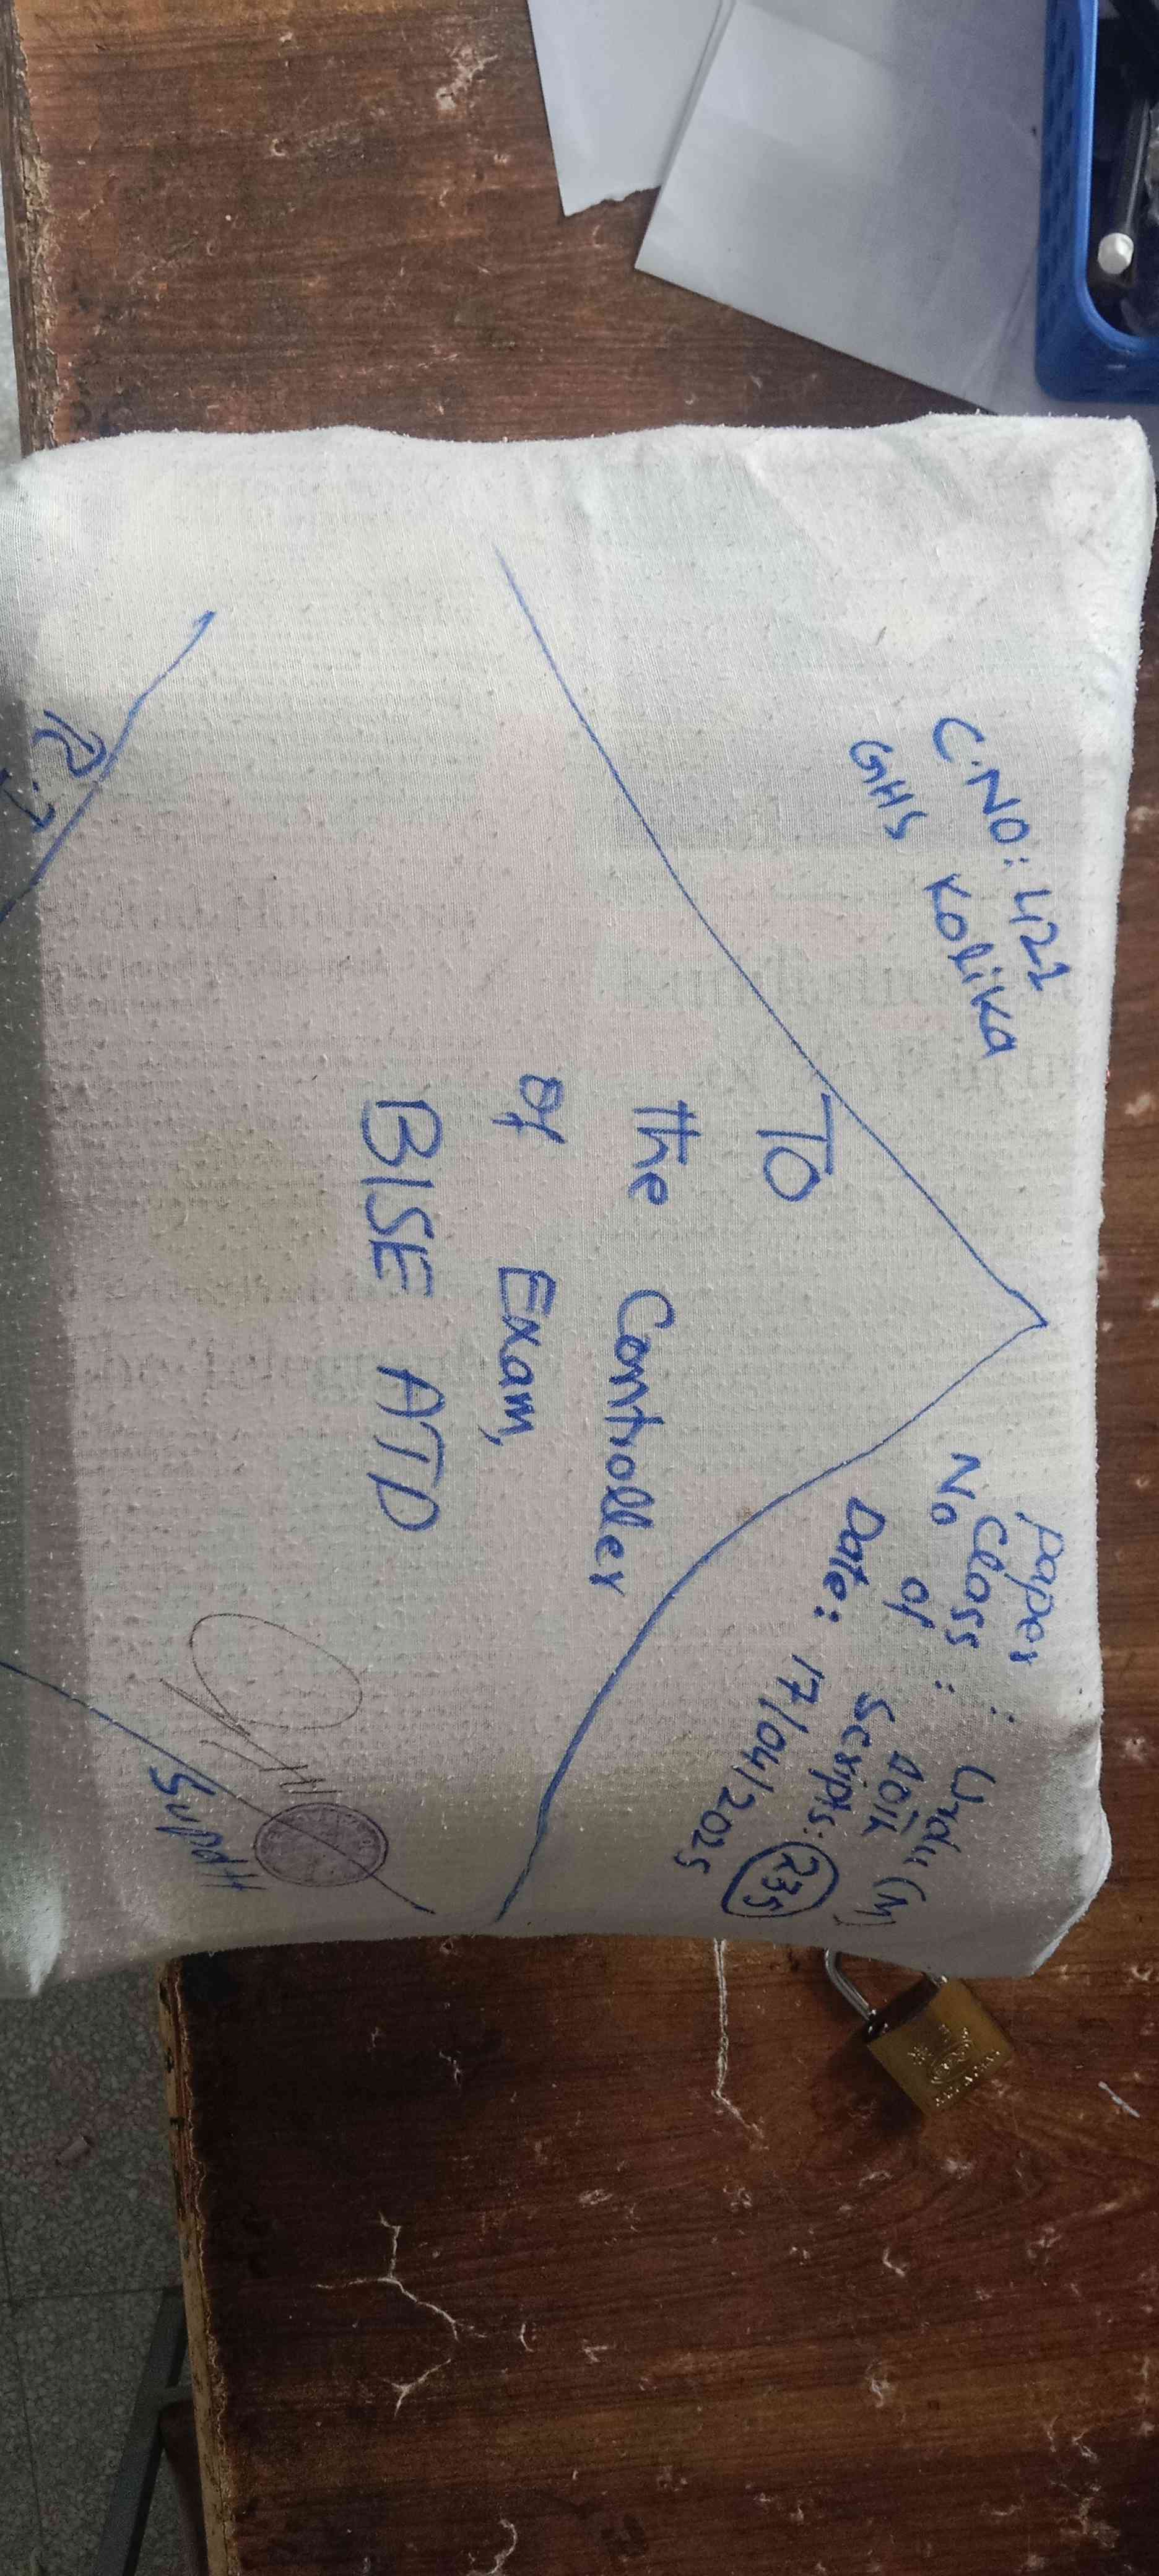 C.NO: 422
GHS Kolika
Paper : Urdu (M)
Class : 10th
No of Scripts: 235
Date: 17/04/2025
TO
the Controller
of Exam,
BISE ATD
Supdtt